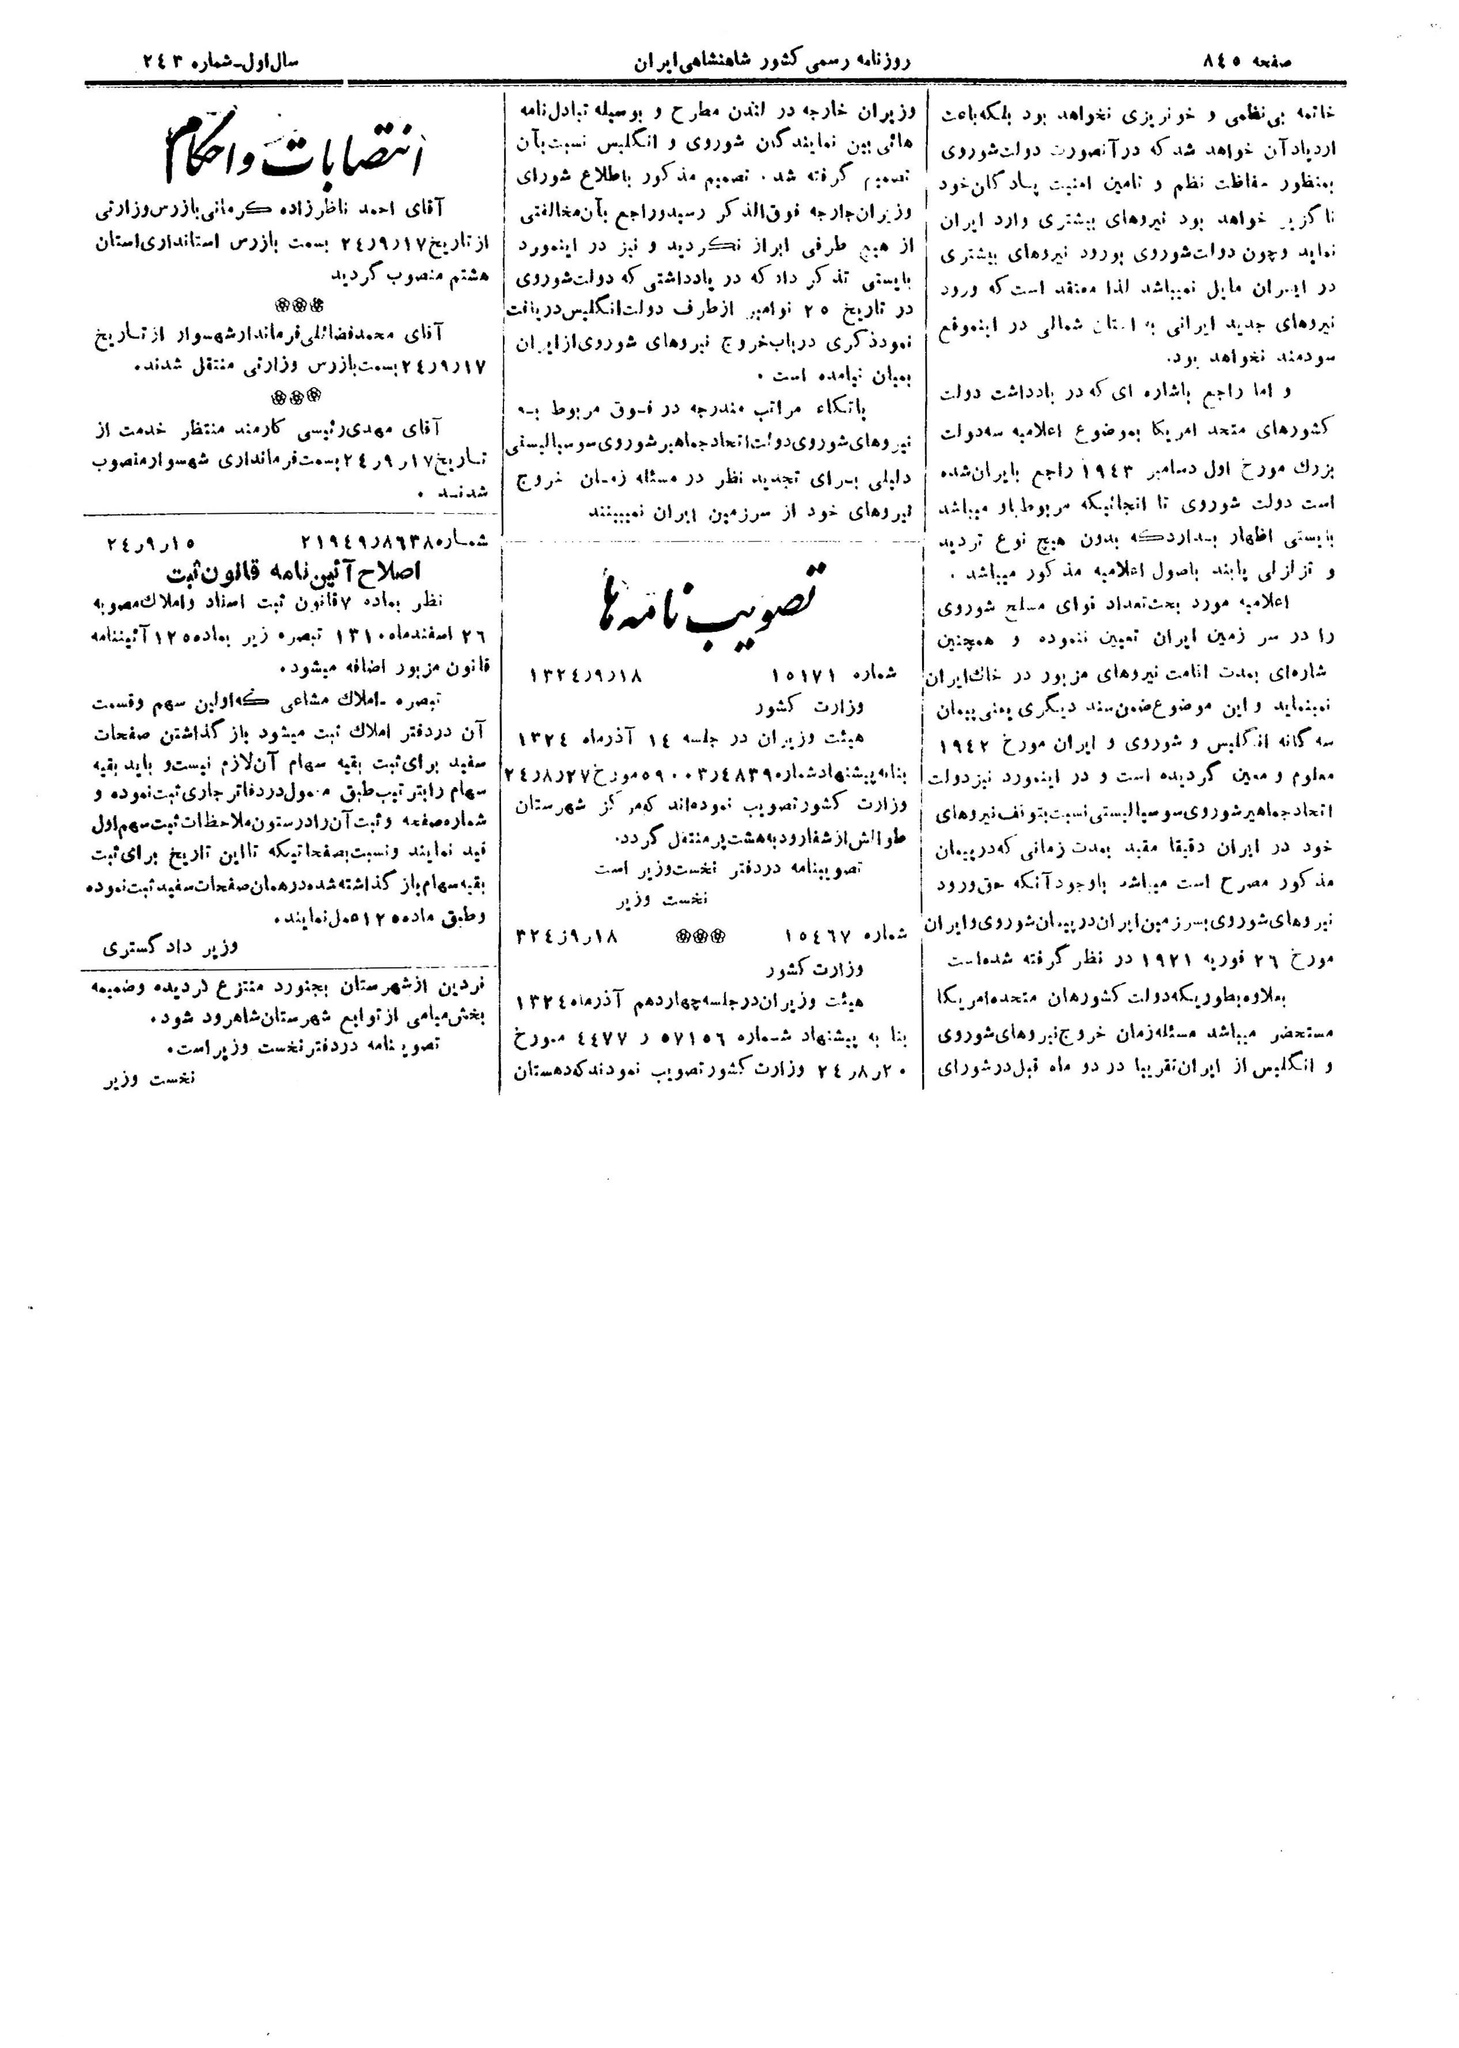 صفحه ۸٤٥
روزنامه رسمی کشور شاهنشاهی ایران
سال اول-شماره ۲٤۳
خاتمه بی‌نظمی و خونریزی نخواهد بود بلکه باعث
ازدیاد آن خواهد شد که در آنصورت دولت شوروی
بمنظور حفاظت نظم و تامین امنیت پادگان خود
ناگزیر خواهد بود نیروهای بیشتری وارد ایران
نماید وچون دولت شوروی بورود نیروهای بیشتری
در ایران مایل نمیباشد لذا معتقد است که ورود
نیروهای جدید ایرانی به استان شمالی در اینموقع
سودمند نخواهد بود.
و اما راجع باشاره ای که در یادداشت دولت
کشورهای متحد امریکا بموضوع اعلامیه سه دولت
بزرك مورخ اول دسامبر ۱۹٤۳ راجع بایران شده
است دولت شوروی تا انجائیکه مربوط باو میباشد
بایستی اظهار بدارد که بدون هیچ نوع تردید
و تزلزلی پابند باصول اعلامیه مذکور میباشد .
اعلامیه مورد بحث تعداد قوای مسلح شوروی
را در سر زمین ایران تعیین ننموده و همچنین
شاره‌ای بمدت اقامت نیروهای مزبور در خاك ایران
نمینماید و این موضوع ضمن سند دیگری یعنی پیمان
سه گانه انگلیس و شوروی و ایران مورخ ۱۹٤۲
معلوم و معین گردیده است و در اینمورد نیز دولت
اتحاد جماهیر شوروی سوسیالیستی نسبت بتوقف نیروهای
خود در ایران دقیقا مقید بمدت زمانی که در پیمان
مذکور مصرح است میباشد باوجود آنکه حق ورود
نیروهای شوروی بسر زمین ایران در پیمان شوروی و ایران
مورخ ۲٦ فوریه ۱۹۲۱ در نظر گرفته شده است
بعلاوه بطوریکه دولت کشورهان متحده امریکا
مستحضر میباشد مسئله زمان خروج نیروهای شوروی
و انگلیس از ایران تقریبا در دو ماه قبل در شورای
وزیران خارجه در لندن مطرح و بوسیله تبادل نامه
هائی بین نمایندگان شوروی و انگلیس نسبت بآن
تصمیم گرفته شد . تصمیم مذکور باطلاع شورای
وزیران خارجه فوق الذکر رسید و راجع بآن مخالفتی
از هیچ طرفی ابراز نگردید و نیز در اینمورد
بایستی تذکر داد که در یادداشتی که دولت شوروی
در تاریخ ۲٥ نوامبر از طرف دولت انگلیس دریافت
نمود ذکری در باب خروج نیروهای شوروی از ایران
بمیان نیامده است .
باتکاء مراتب مندرجه در فوق مربوط به
نیروهای شوروی دولت اتحاد جماهیر شوروی سوسیالیستی
دلیلی برای تجدید نظر در مسئله زمان خروج
نیروهای خود از سرزمین ایران نمیبینند
تصویب نامه ها
شماره ۱٥۱۷۱ ۱۳۲٤ر۹ر۱۸
وزارت کشور
هیئت وزیران در جلسه ۱٤ آذرماه ۱۳۲٤
بنا به پیشنهاد شماره ٥۹۰۰۳ر٤۸۳۹ مورخ ۲٤ر۸ر۲۷
وزارت کشور تصویب نموده‌اند که مرکز شهرستان
طوالش از شفارود به هشت پر منتقل گردد.
تصویبنامه در دفتر نخست وزیر است
نخست وزیر
شماره ۱٥٤٦۷ ❀❀❀ ۳۲٤ر۹ر۱۸
وزارت کشور
هیئت وزیران در جلسه چهاردهم آذرماه ۱۳۲٤
بنا به پیشنهاد شماره ٥۷۱٥٦ ر ٤٤۷۷ مورخ
۲٤ر۸ر۲۰ وزارت کشور تصویب نمودند که دهستان
انتصابات و احکام
آقای احمد ناظرزاده کرمانی بازرس وزارتی
از تاریخ ۲٤ر۹ر۱۷ بسمت بازرس استانداری استان
هشتم منصوب گردید
❀❀❀
آقای محمد فضائلی فرماندار شهسوار از تاریخ
۲٤ر۹ر۱۷ بسمت بازرس وزارتی منتقل شدند.
❀❀❀
آقای مهدی رئیسی کارمند منتظر خدمت از
تاریخ ۲٤ر۹ر۱۷ بسمت فرمانداری شهسوار منصوب
شدند .
شماره ۲۱۹٤۹ر۸٦۳۸ ۲٤ر۹ر۱٥
اصلاح آئین نامه قانون ثبت
نظر بماده ۷ قانون ثبت اسناد و املاك مصوبه
۲٦ اسفندماه ۱۳۱۰ تبصره زیر بماده ۱۲٥ آئیننامه
قانون مزبور اضافه میشود.
تبصره - املاك مشاعی که اولین سهم و قسمت
آن در دفتر املاك ثبت میشود باز گذاشتن صفحات
سفید برای ثبت بقیه سهام آن لازم نیست و باید بقیه
سهام را بترتیب طبق معمول در دفاتر جاری ثبت نموده و
شماره صفحه و ثبت آن را در ستون ملاحظات ثبت سهم اول
قید نمایند و نسبت بصفحاتیکه تا این تاریخ برای ثبت
بقیه سهام باز گذاشته شده در همان صفحات سفید ثبت نموده
و طبق ماده ۱۲٥ عمل نمایند.
وزیر دادگستری
نردین از شهرستان بجنورد منتزع گردیده و ضمیمه
بخش میامی از توابع شهرستان شاهرود شود.
تصویبنامه در دفتر نخست وزیر است.
نخست وزیر